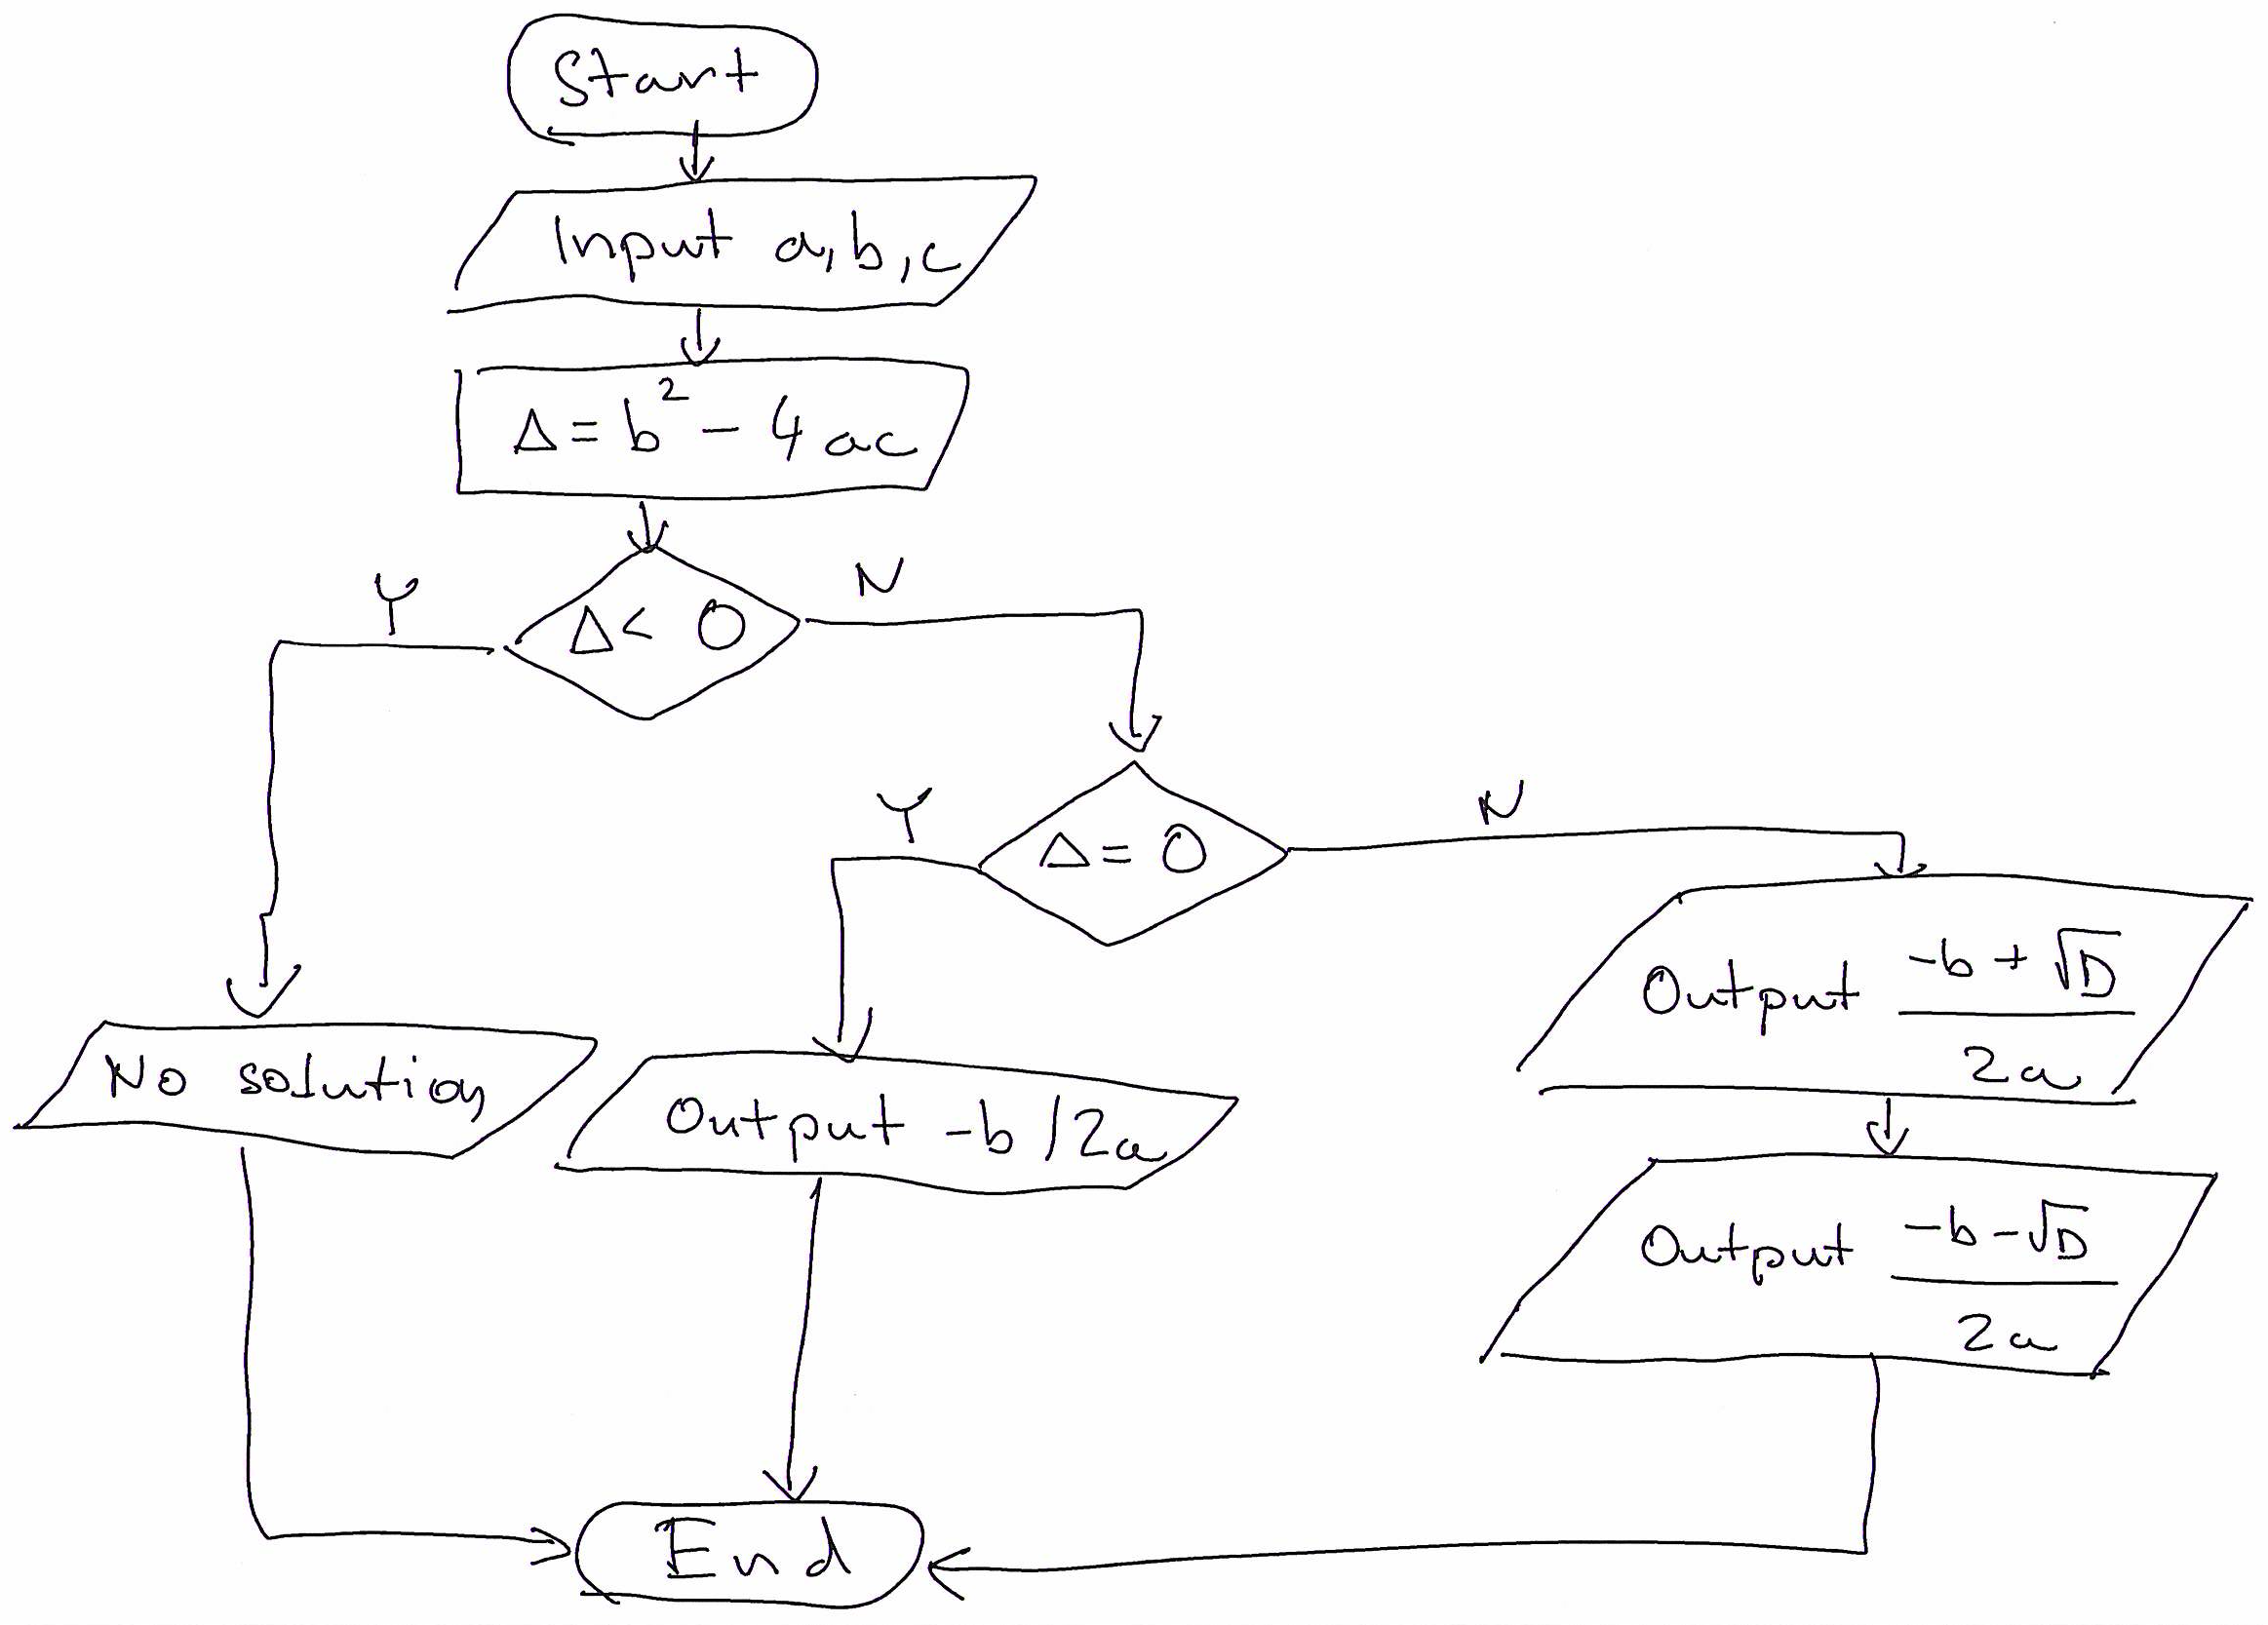 Start
Input a, b, c
Δ = b² - 4ac
Y
Δ < 0
N
Y
Δ = 0
N
No solution
Output -b/2a
Output (-b + √D)/2a
Output (-b - √D)/2a
End